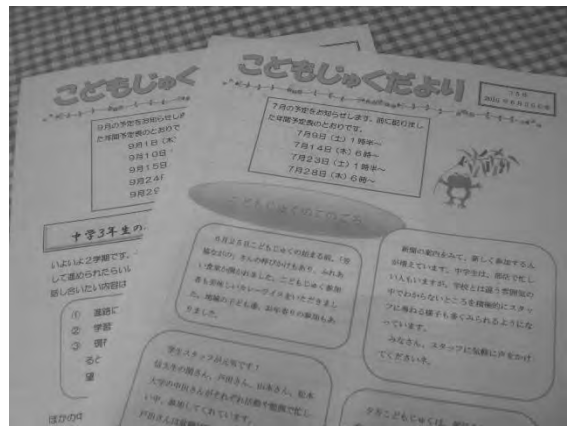 こどもじゅく
9月の予定をお知らせし
た年間予定表のとおりで
9月1日(木)
9月10日
9月15日
9月24
9月2
中学3年生の
いよいよ2学期です。
して進められたらい
話し合いたい内容は
① 進路に
② 学習
③
ると
ほかの中
こどもじゅくだより
7月の予定をお知らせします。前に配りまし
た年間予定表のとおりです。
7月9日(土)1時半~
7月14日(木)6時~
7月23日(土)1時半~
7月28日(木)6時~
こどもじゅくのこのごろ
6月25日こどもじゅくの始まる前、
さんの呼びかけもあり、ふれあ
い食堂が開かれました。こどもじゅく参加
者も美味しいカレーライスをいただきまし
た。地域の子ども達、お年寄りの参加もあ
りました。
新聞の案内をみて、新しく参加する人
が増えています。中学生は、部活で忙し
い人もいますが、学校とは違う雰囲気の
中でわからないところを積極的にスタッ
フに尋ねる様子も多くみられるようにな
っています。
みなさん、スタッフに気軽に声をかけ
てくださいネ。
学生スタッフが元気です!
信大生の関さん、戸田さん、山本さん、松本
大学の中田さんがそれぞれ活動や勉強で忙し
い中、参加してくれています。
夕方こどもじゅくは、